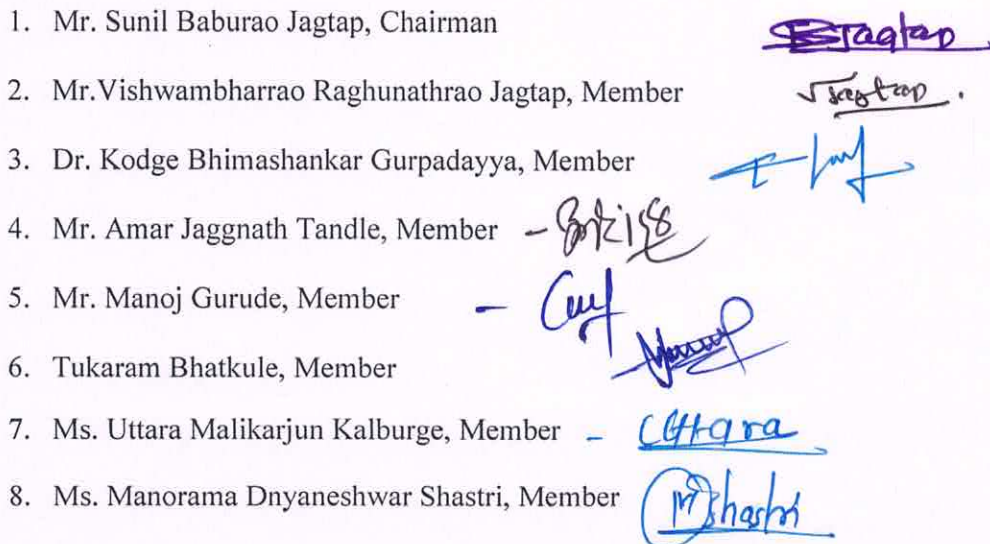 1. Mr. Sunil Baburao Jagtap, Chairman Jagtap
2. Mr.Vishwambharrao Raghunathrao Jagtap, Member Jagtap.
3. Dr. Kodge Bhimashankar Gurpadayya, Member
4. Mr. Amar Jaggnath Tandle, Member -
5. Mr. Manoj Gurude, Member -
6. Tukaram Bhatkule, Member
7. Ms. Uttara Malikarjun Kalburge, Member - Uttara
8. Ms. Manorama Dnyaneshwar Shastri, Member Shastri